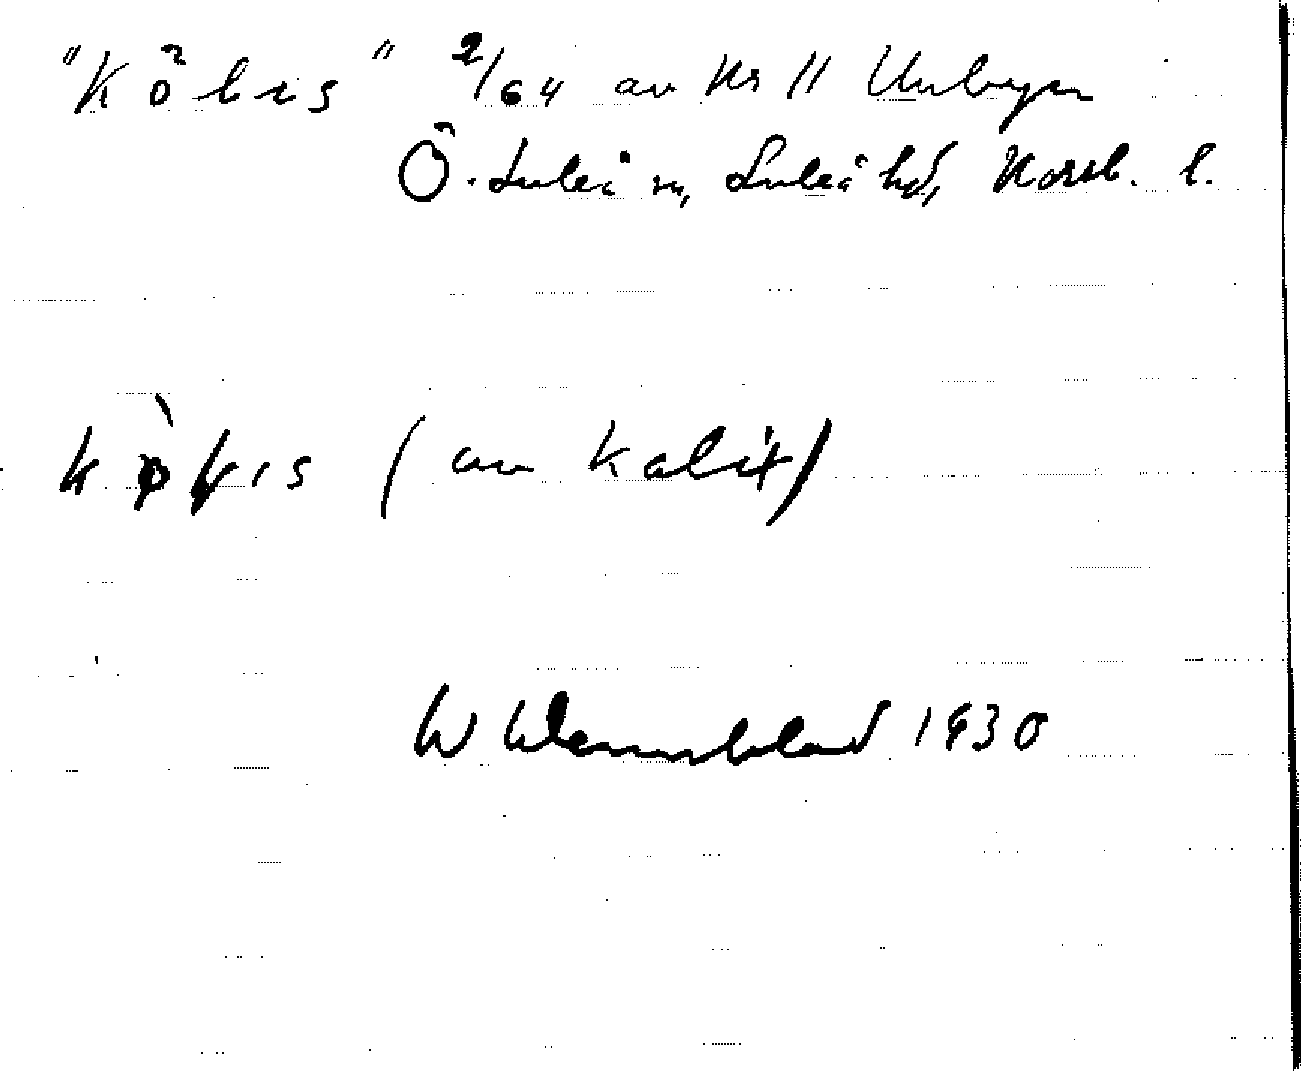 "Köbis" 2/64 av Nr 11 Unbyn
Ö. Luleå sn, Luleå hd, Norrb. l.
(av Kalix)
W Wennblad 1930